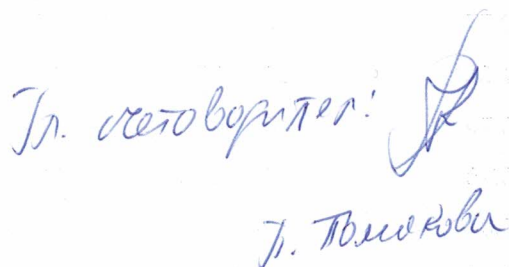 Гл. счетоводител:
П. Томакова